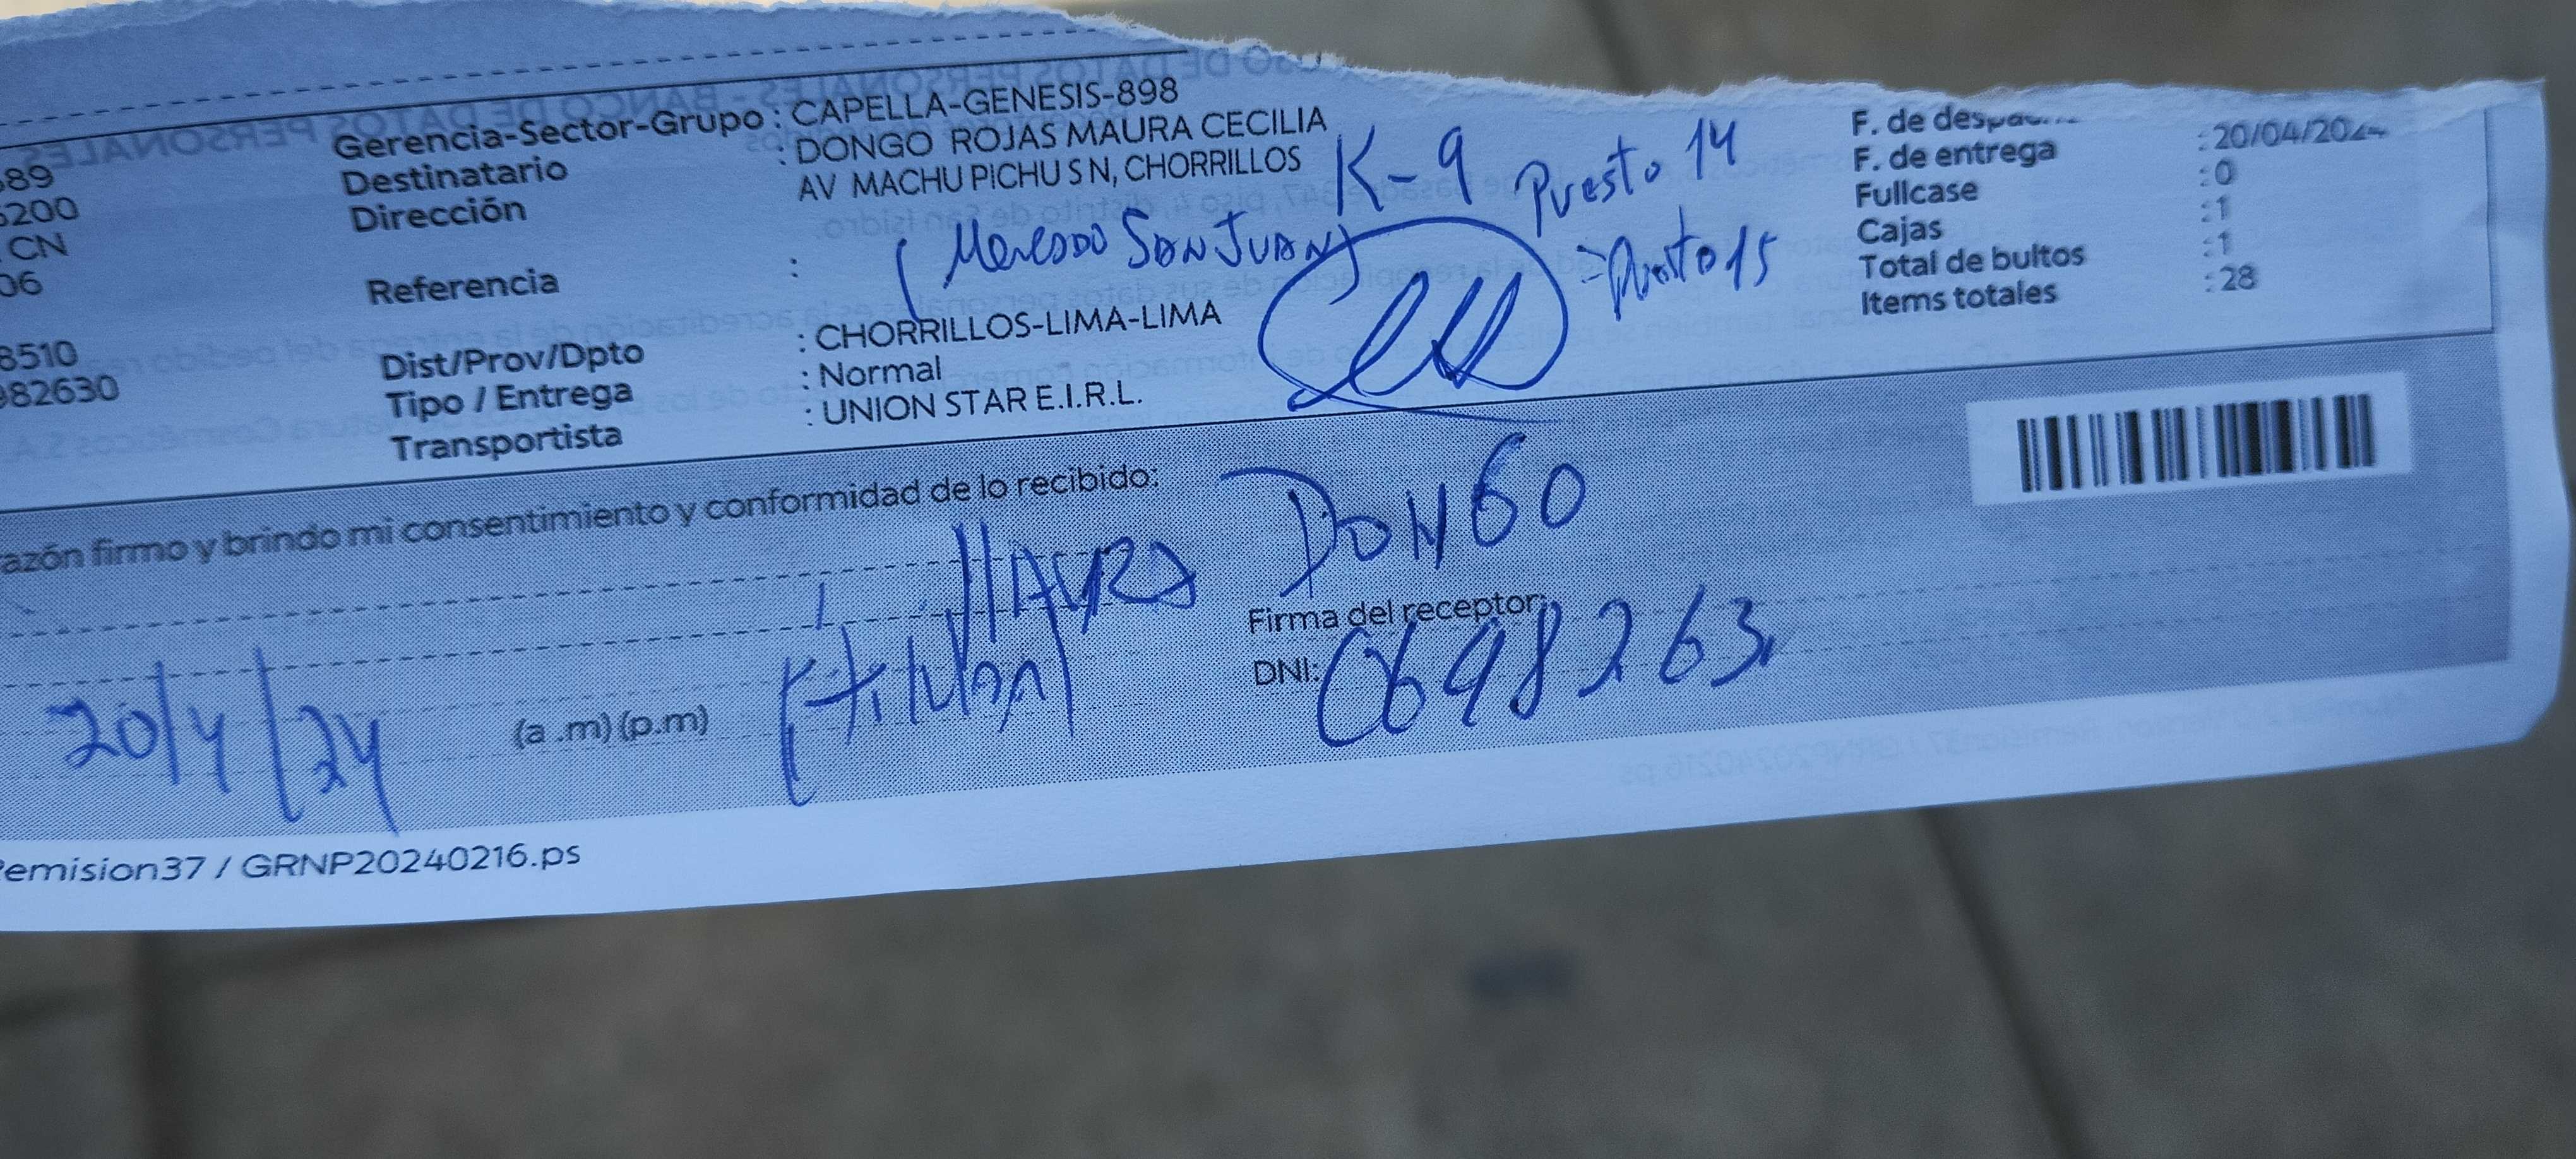 Gerencia-Sector-Grupo : CAPELLA-GENESIS-898
Destinatario : DONGO ROJAS MAURA CECILIA
Dirección AV MACHU PICHU S N, CHORRILLOS K-9 Puesto 14
(Mercado SAN JUAN) Puesto 15
Referencia :
Dist/Prov/Dpto : CHORRILLOS-LIMA-LIMA
Tipo / Entrega : Normal
Transportista : UNION STAR E.I.R.L.
89
200
CN
06
8510
982630
F. de
F. de entrega : 20/04/2024
Fullcase : 0
Cajas : 1
Total de bultos : 1
Items totales : 28
azón firmo y brindo mi consentimiento y conformidad de lo recibido:
MAURA DONGO
Firma del receptor:
20/4/24 (a .m) (p.m)
DNI: 0698263
emision37 / GRNP20240216.ps